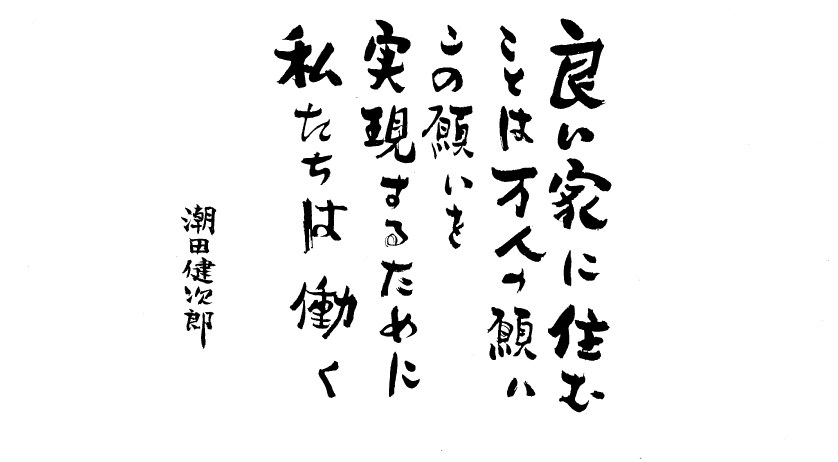 良い家に住む
ことは万人の願い
この願いを
実現するために
私たちは働く
潮田健次郎